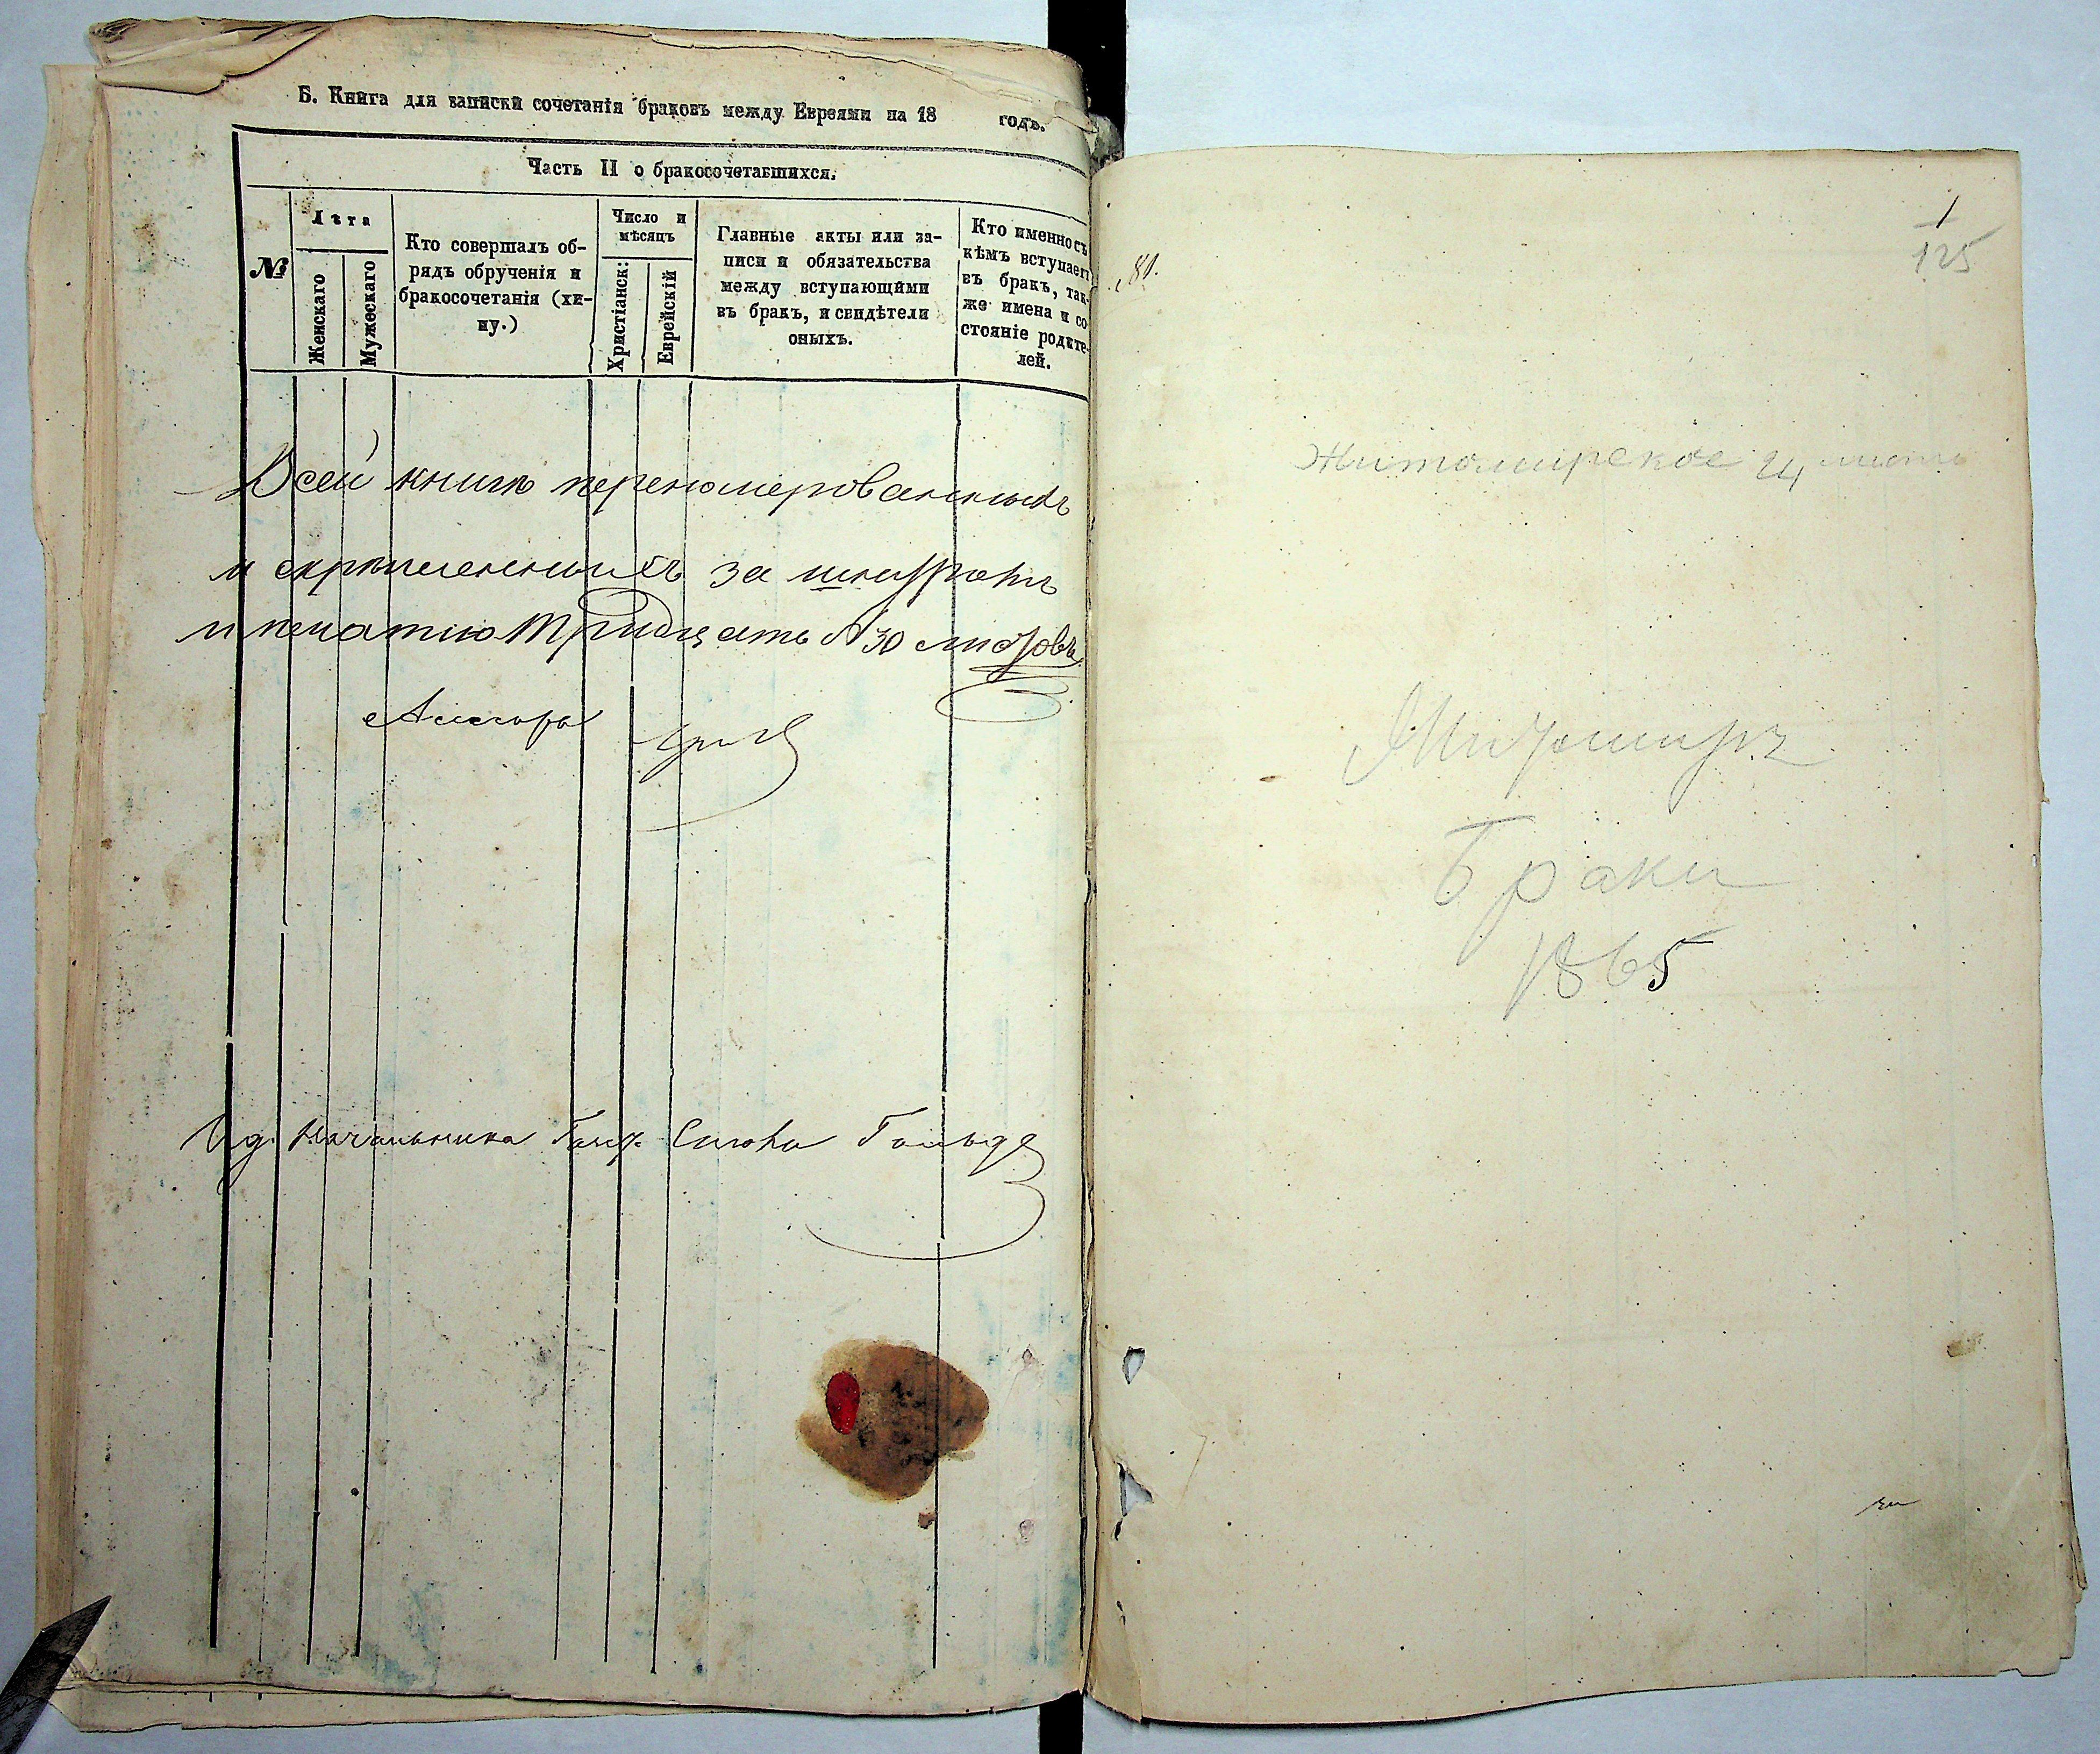 Б. Книга для записки сочетанія браковъ между Евреями на 18 годъ.
Часть II о бракосочетавшихся.
№
Лѣта
Женскаго
Мужескаго
Кто совершалъ об-
рядъ обрученія и
бракосочетанія (хи-
ну.)
Число и
мѣсяцъ
Христіанск:
Еврейскій
Главные акты или за-
писи и обязательства
между вступающими
въ бракъ, и свидѣтели
оныхъ.
Кто именно съ
кѣмъ вступает
въ бракъ, так-
же имена и со
стояніе родите-
лей.
Всей книги перенумерованныхъ
и скрѣпленныхъ за шнуромъ
и печатью Тридцать № 30 листовъ
Ид. Начальника Гольде
1
125
81.
Житомирское 24
Житомиръ
Браки
1865